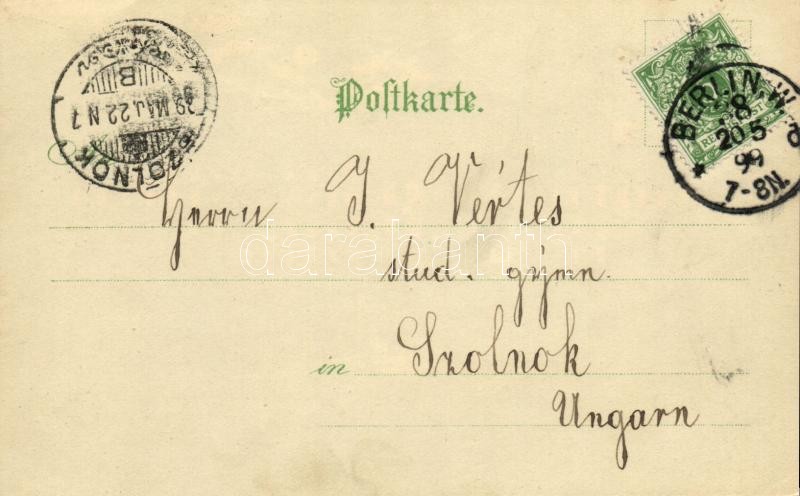 Postkarte.
BERLIN, W
8
20 5
99
7-8N.
SZOLNOK
MAJ. 22 N 7
B
Herrn J. Vértes
stud. gymn.
in Szolnok
Ungarn
darabanth